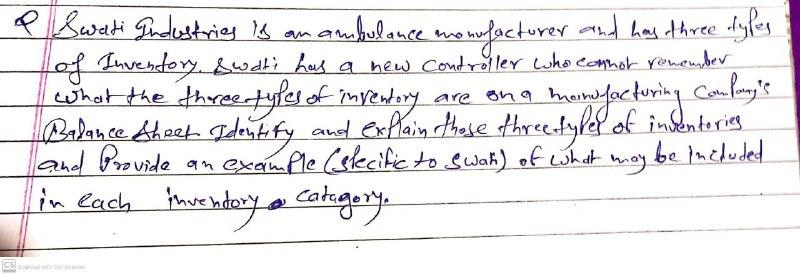 Q Swati Industries is an ambulance monufacturer and has three types
of Inventory. Swati has a new Controller who cannot remember
what the three types of inventory are on a manufacturing Company's
Balance Sheet Identify and explain those three types of inventories
and Provide an example (specific to Swati) of what may be included
in each inventory catagory.
CS Scanned with CamScanner